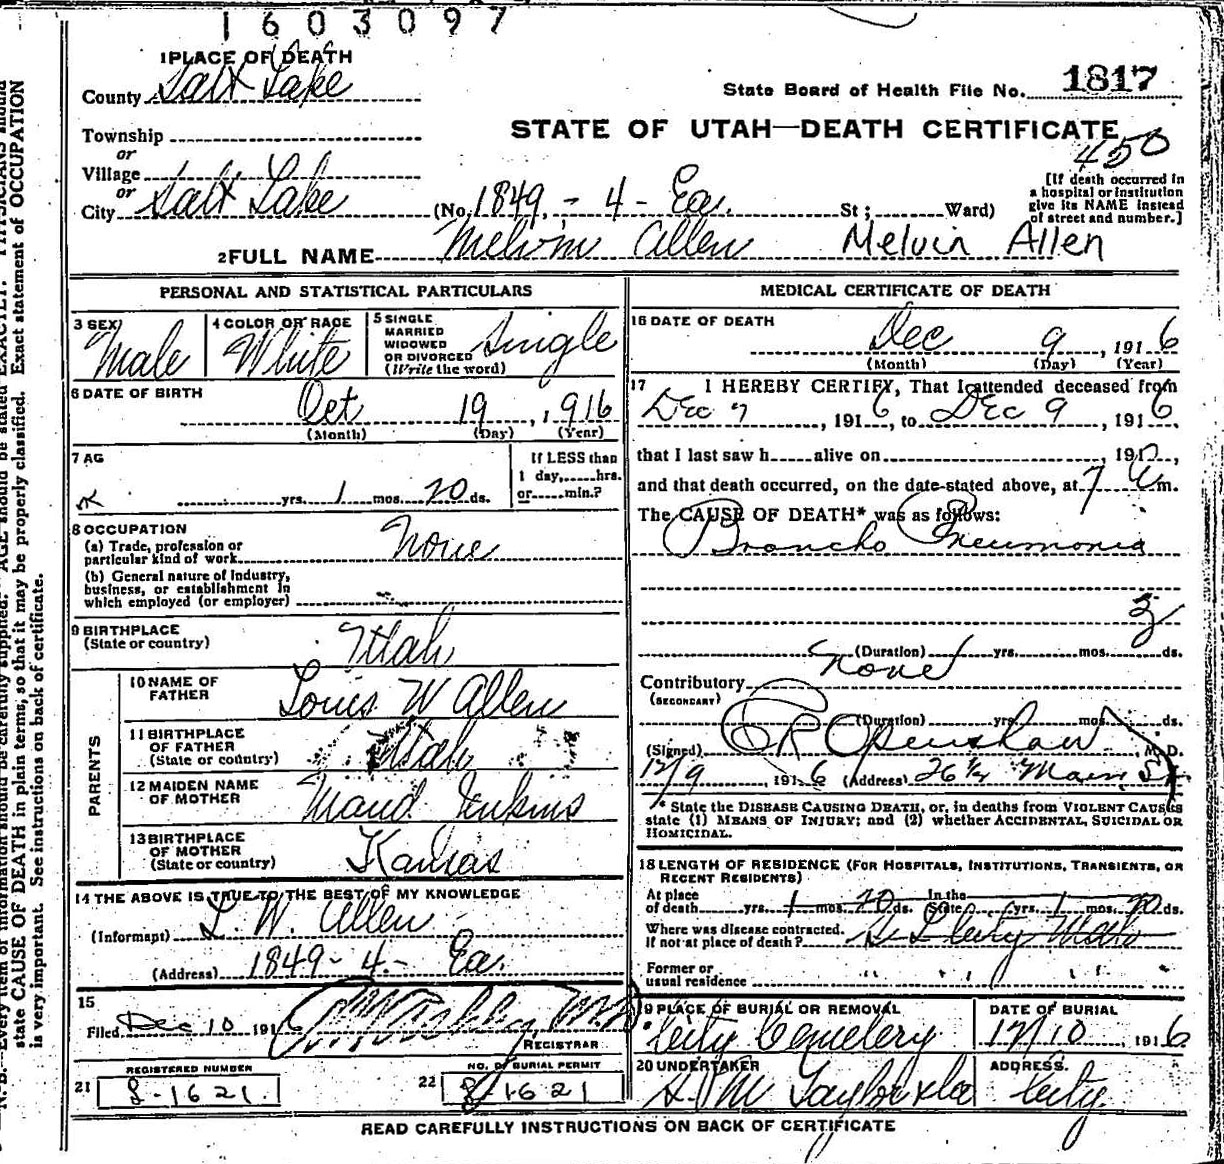 1603097
1 PLACE OF DEATH
County Salt Lake
State Board of Health File No. 1817
Township
STATE OF UTAH—DEATH CERTIFICATE
or
450
Village
or
[If death occurred in a hospital or institution give its NAME instead of street and number.]
City Salt Lake (No. 1849 - 4 - Ea. St; Ward)
2 FULL NAME Melvin Allen Melvin Allen
PERSONAL AND STATISTICAL PARTICULARS
3 SEX Male
4 COLOR OR RACE White
5 SINGLE MARRIED WIDOWED OR DIVORCED (Write the word) Single
6 DATE OF BIRTH Oct 19, 1916
(Month) (Day) (Year)
7 AG
yrs. 1 mos. 20 ds.
If LESS than
1 day, hrs.
or min.?
8 OCCUPATION
(a) Trade, profession or
particular kind of work None
(b) General nature of industry,
business, or establishment in
which employed (or employer)
9 BIRTHPLACE
(State or country) Utah
PARENTS
10 NAME OF
FATHER Louis W Allen
11 BIRTHPLACE
OF FATHER
(State or country) Utah
12 MAIDEN NAME
OF MOTHER Maud Jenkins
13 BIRTHPLACE
OF MOTHER
(State or country) Kansas
14 THE ABOVE IS TRUE TO THE BEST OF MY KNOWLEDGE
(Informant) L. W. Allen
(Address) 1849 - 4 - Ea.
15
Filed Dec 10 1916 M.D.
REGISTRAR
REGISTERED NUMBER
21 8-1621
NO. OF BURIAL PERMIT
22 8/1621
MEDICAL CERTIFICATE OF DEATH
16 DATE OF DEATH
Dec 9, 1916
(Month) (Day) (Year)
17 I HEREBY CERTIFY, That I attended deceased from
Dec 7, 1916, to Dec 9 1916
that I last saw h alive on , 191 ,
and that death occurred, on the date stated above, at 7 m.
The CAUSE OF DEATH* was as follows:
Broncho Pneumonia
3
(Duration) yrs. mos. ds.
Contributory None
(SECONDARY)
(Duration) yrs. mos. ds.
(Signed) Openshaw M. D.
12/9 1916 (Address) Main St
* State the DISEASE CAUSING DEATH, or, in deaths from VIOLENT CAUSES
state (1) MEANS OF INJURY; and (2) whether ACCIDENTAL, SUICIDAL OR
HOMICIDAL.
18 LENGTH OF RESIDENCE (FOR HOSPITALS, INSTITUTIONS, TRANSIENTS, OR
RECENT RESIDENTS)
At place In the
of death yrs. 1 mos. 20 ds. State yrs. 1 mos. 20 ds.
Where was disease contracted.
If not at place of death? S L City Utah
Former or
usual residence
19 PLACE OF BURIAL OR REMOVAL
City Cemetery
DATE OF BURIAL
12/10, 1916
20 UNDERTAKER
S. M Taylor & Co
ADDRESS.
City
READ CAREFULLY INSTRUCTIONS ON BACK OF CERTIFICATE
state CAUSE OF DEATH in plain terms, so that it may be properly classified. Exact statement of OCCUPATION
is very important. See instructions on back of certificate.